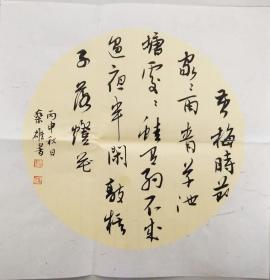 黄梅時節
家〻雨青草池
塘處〻蛙有約不来
過夜半閑敲棋
子落燈花
丙申秋日
蔡雄書